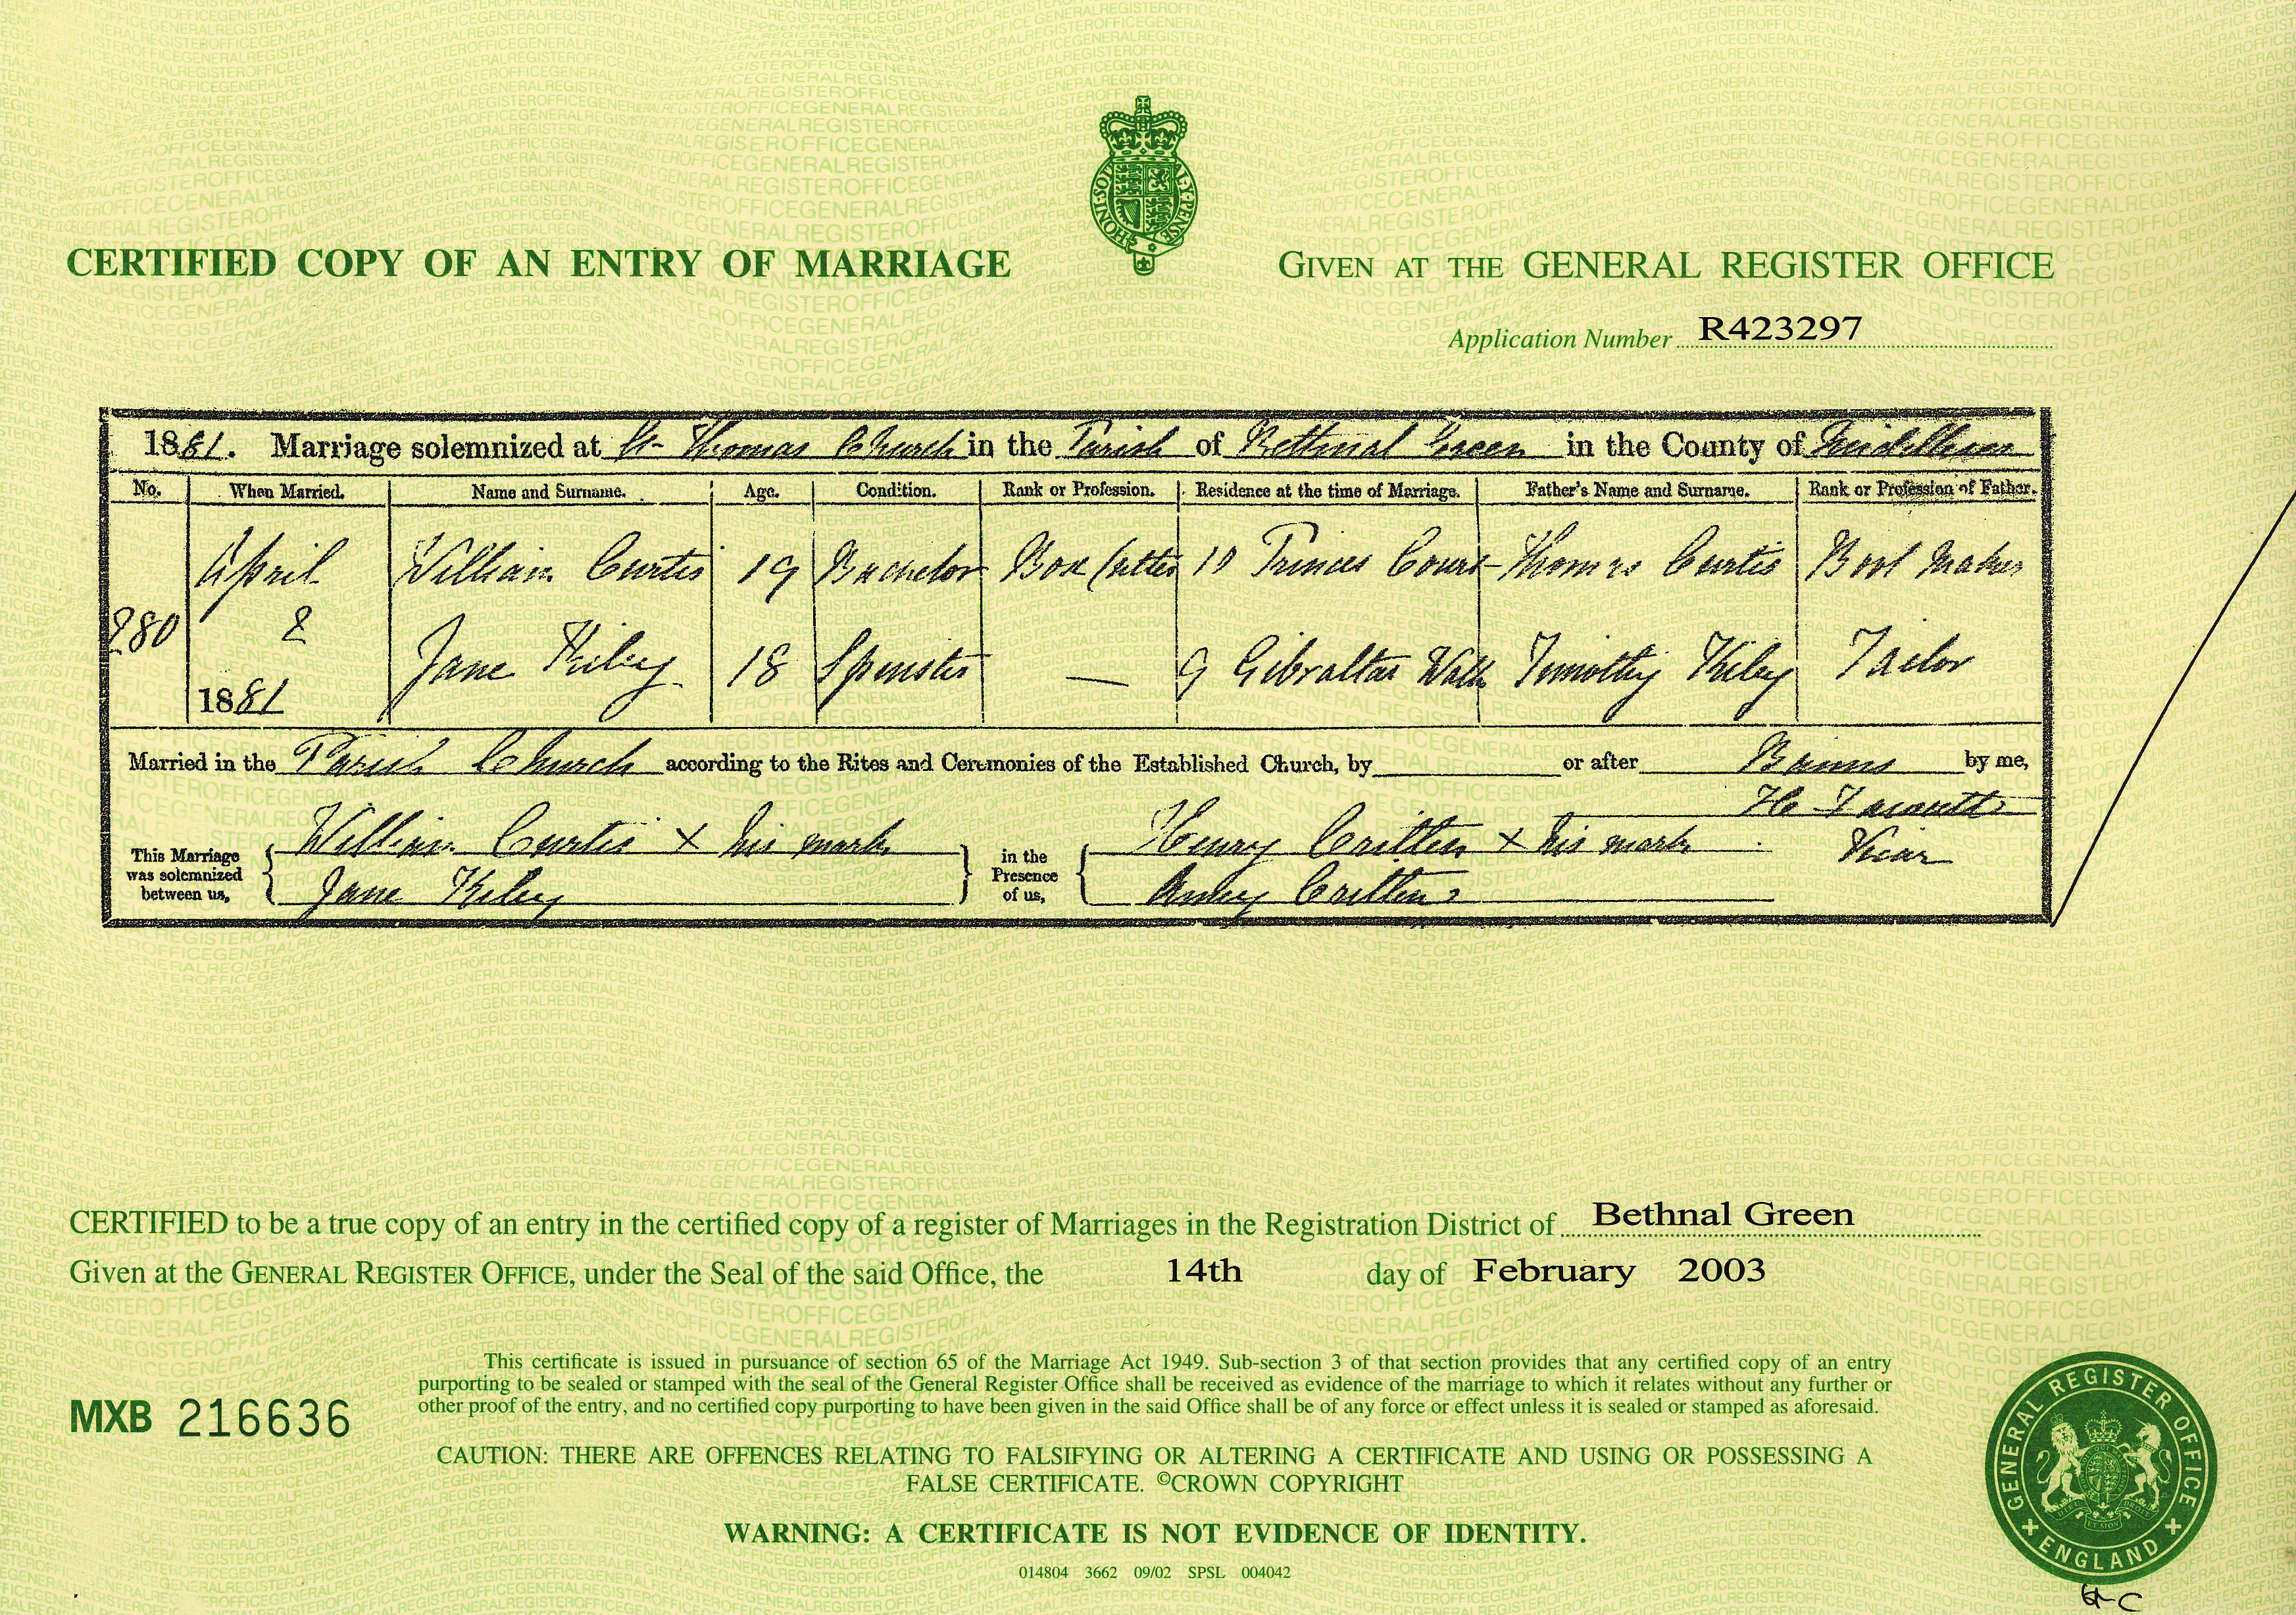 CERTIFIED COPY OF AN ENTRY OF MARRIAGE
GIVEN AT THE GENERAL REGISTER OFFICE
Application Number R423297
1881. Marriage solemnized at St Thomas Church in the Parish of Bethnal Green in the County of Middlesex
No. When Married. Name and Surname. Age. Condition. Rank or Profession. Residence at the time of Marriage. Father's Name and Surname. Rank or Profession of Father.
April William Curtis 19 Bachelor Box Cutter 10 Princes Court Thomas Curtis Boot Maker
280 2
1881 Jane Kiley 18 Spinster — 9 Gibraltar Walk Timothy Kiley Tailor
Married in the Parish Church according to the Rites and Ceremonies of the Established Church, by or after Banns by me,
This Marriage was solemnized between us, William Curtis X his mark in the Presence of us, Henry Critten X his mark Vicar
Jane Kiley Critten
CERTIFIED to be a true copy of an entry in the certified copy of a register of Marriages in the Registration District of Bethnal Green
Given at the GENERAL REGISTER OFFICE, under the Seal of the said Office, the 14th day of February 2003
This certificate is issued in pursuance of section 65 of the Marriage Act 1949. Sub-section 3 of that section provides that any certified copy of an entry
purporting to be sealed or stamped with the seal of the General Register Office shall be received as evidence of the marriage to which it relates without any further or
other proof of the entry, and no certified copy purporting to have been given in the said Office shall be of any force or effect unless it is sealed or stamped as aforesaid.
MXB 216636
CAUTION: THERE ARE OFFENCES RELATING TO FALSIFYING OR ALTERING A CERTIFICATE AND USING OR POSSESSING A
FALSE CERTIFICATE. ©CROWN COPYRIGHT
WARNING: A CERTIFICATE IS NOT EVIDENCE OF IDENTITY.
014804 3662 09/02 SPSL 004042
GENERAL REGISTER OFFICE
ENGLAND